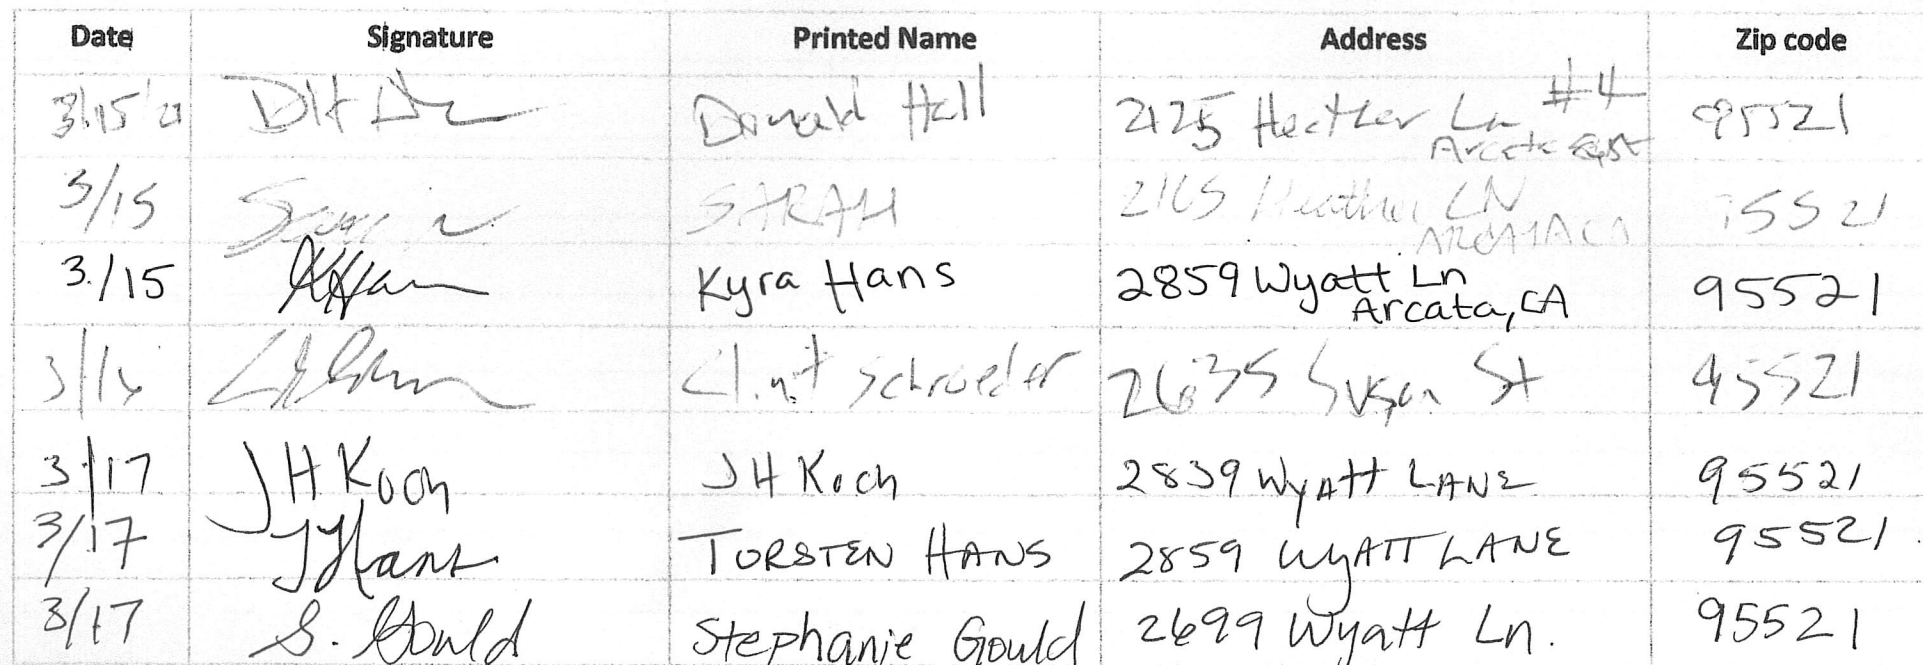 Date Signature Printed Name Address Zip code
3/15 Donald Hall 2125 Heather Ln #4 95521
Arcata
3/15 SARAH 2165 Heather LN 95521
ARCATA CA
3/15 Kyra Hans 2859 Wyatt Ln 95521
Arcata, CA
3/16 Clint Schroeder 2635 Susan St 95521
3/17 JH Koch JH Koch 2839 WyAtt LANE 95521
3/17 T Hans TORSTEN HANS 2859 WyATT LANE 95521
3/17 S. Gould Stephanie Gould 2699 Wyatt Ln. 95521